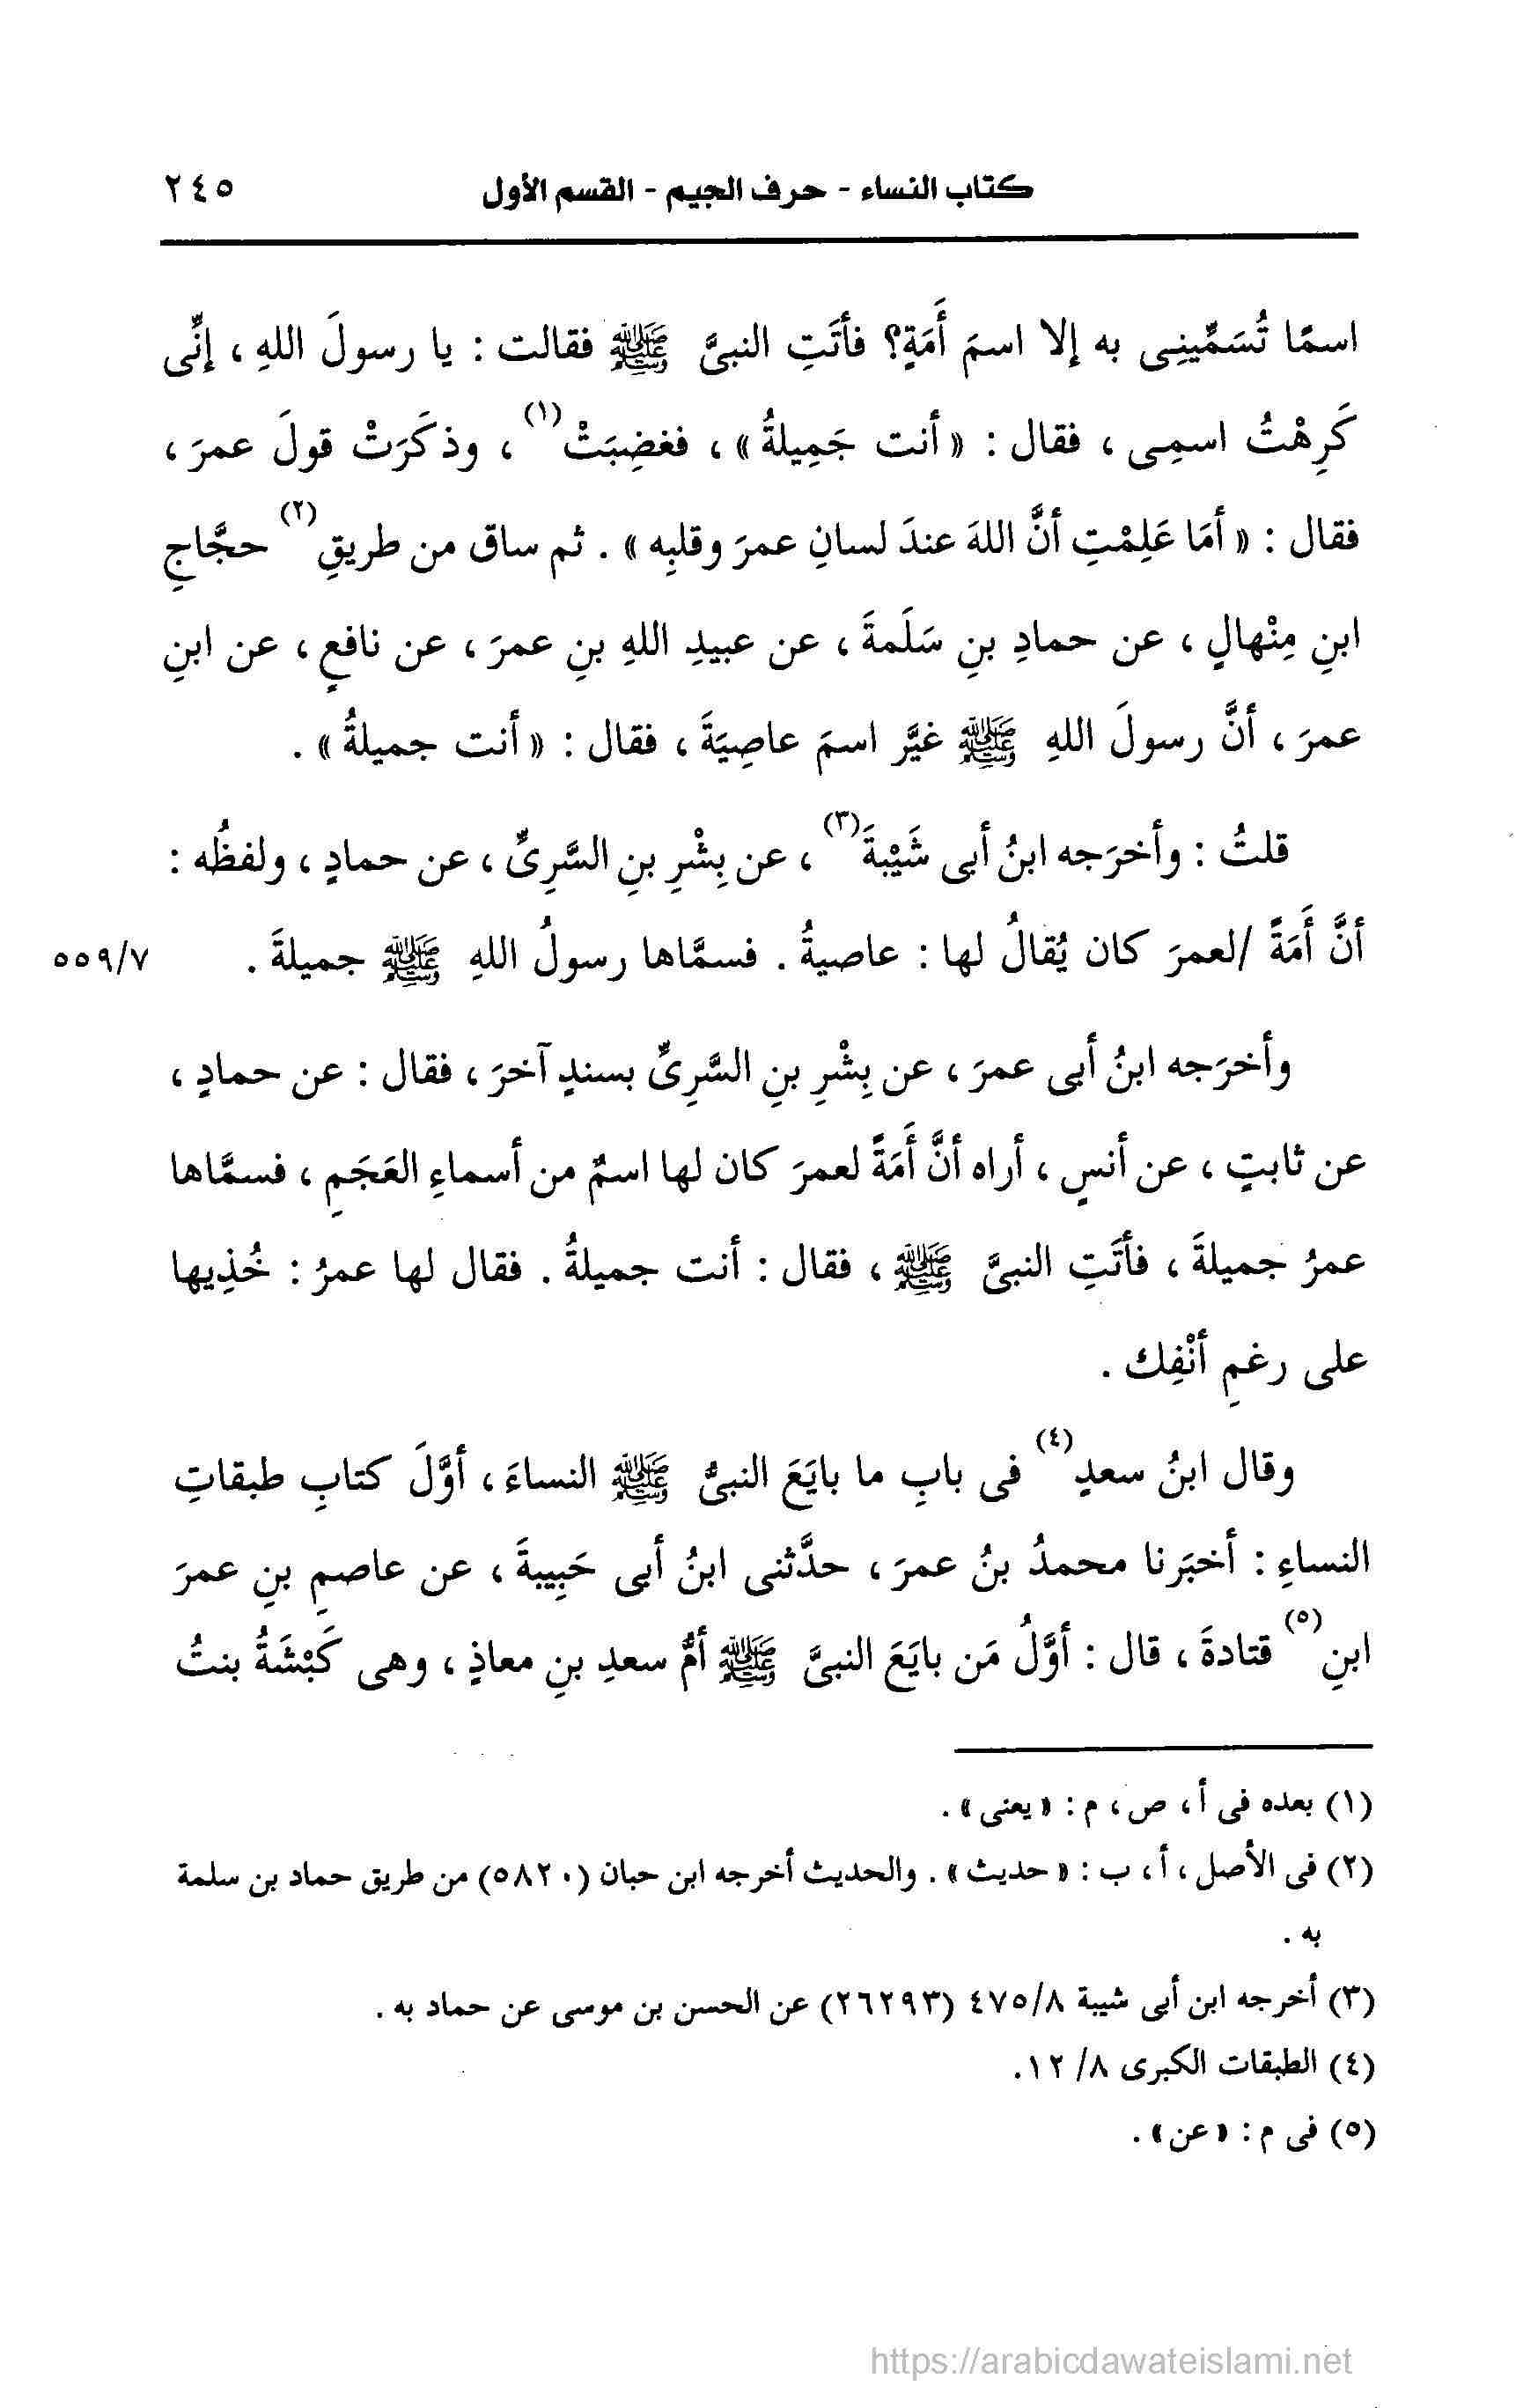 كتاب النساء - حرف الجيم - القسم الأول ٢٤٥
اسمًا تُسَمِّينِى به إلا اسمَ أَمَةٍ؟ فأتَتِ النبىَّ ﷺ فقالت : يا رسولَ اللهِ ، إنِّى
كَرِهْتُ اسمِى ، فقال : « أنت جَمِيلةُ » ، فغضِبَتْ(١) ، وذكَرَتْ قولَ عمرَ ،
فقال : « أمَا عَلِمْتِ أنَّ اللهَ عندَ لسانِ عمرَ وقلبِه » . ثم ساق من طريقِ(٢) حجَّاجِ
ابنِ مِنْهالٍ ، عن حمادِ بنِ سَلَمةَ ، عن عبيدِ اللهِ بنِ عمرَ ، عن نافعٍ ، عن ابنِ
عمرَ ، أنَّ رسولَ اللهِ ﷺ غيَّر اسمَ عاصِيَةَ ، فقال : « أنت جميلةُ » .
قلتُ : وأخرَجه ابنُ أبى شَيْبةَ(٣) ، عن بِشْرِ بنِ السَّرِىِّ ، عن حمادٍ ، ولفظُه :
أنَّ أَمَةً /لعمرَ كان يُقالُ لها : عاصيةُ . فسمَّاها رسولُ اللهِ ﷺ جميلةَ . ٥٥٩/٧
وأخرَجه ابنُ أبى عمرَ ، عن بِشْرِ بنِ السَّرِىِّ بسندٍ آخرَ ، فقال : عن حمادٍ ،
عن ثابتٍ ، عن أنسٍ ، أراه أنَّ أَمَةً لعمرَ كان لها اسمٌ من أسماءِ العَجَمِ ، فسمَّاها
عمرُ جميلةَ ، فأتَتِ النبىَّ ﷺ ، فقال : أنت جميلةُ . فقال لها عمرُ : خُذِيها
على رغمِ أنْفِك .
وقال ابنُ سعدٍ(٤) فى بابِ ما بايَعَ النبىُّ ﷺ النساءَ ، أوَّلَ كتابِ طبقاتِ
النساءِ : أخبَرنا محمدُ بنُ عمرَ ، حدَّثنى ابنُ أبى حَبِيبةَ ، عن عاصمِ بنِ عمرَ
ابنِ(٥) قتادةَ ، قال : أوَّلُ مَن بايَعَ النبىَّ ﷺ أمُّ سعدِ بنِ معاذٍ ، وهى كَبْشَةُ بنتُ
(١) بعده فى أ ، ص ، م : « يعنى » .
(٢) فى الأصل ، أ ، ب : « حديث » . والحديث أخرجه ابن حبان (٥٨٢٠) من طريق حماد بن سلمة
به .
(٣) أخرجه ابن أبى شيبة ٤٧٥/٨ (٢٦٢٩٣) عن الحسن بن موسى عن حماد به .
(٤) الطبقات الكبرى ٨/ ١٢.
(٥) فى م : « عن » .
https://arabicdawateislami.net